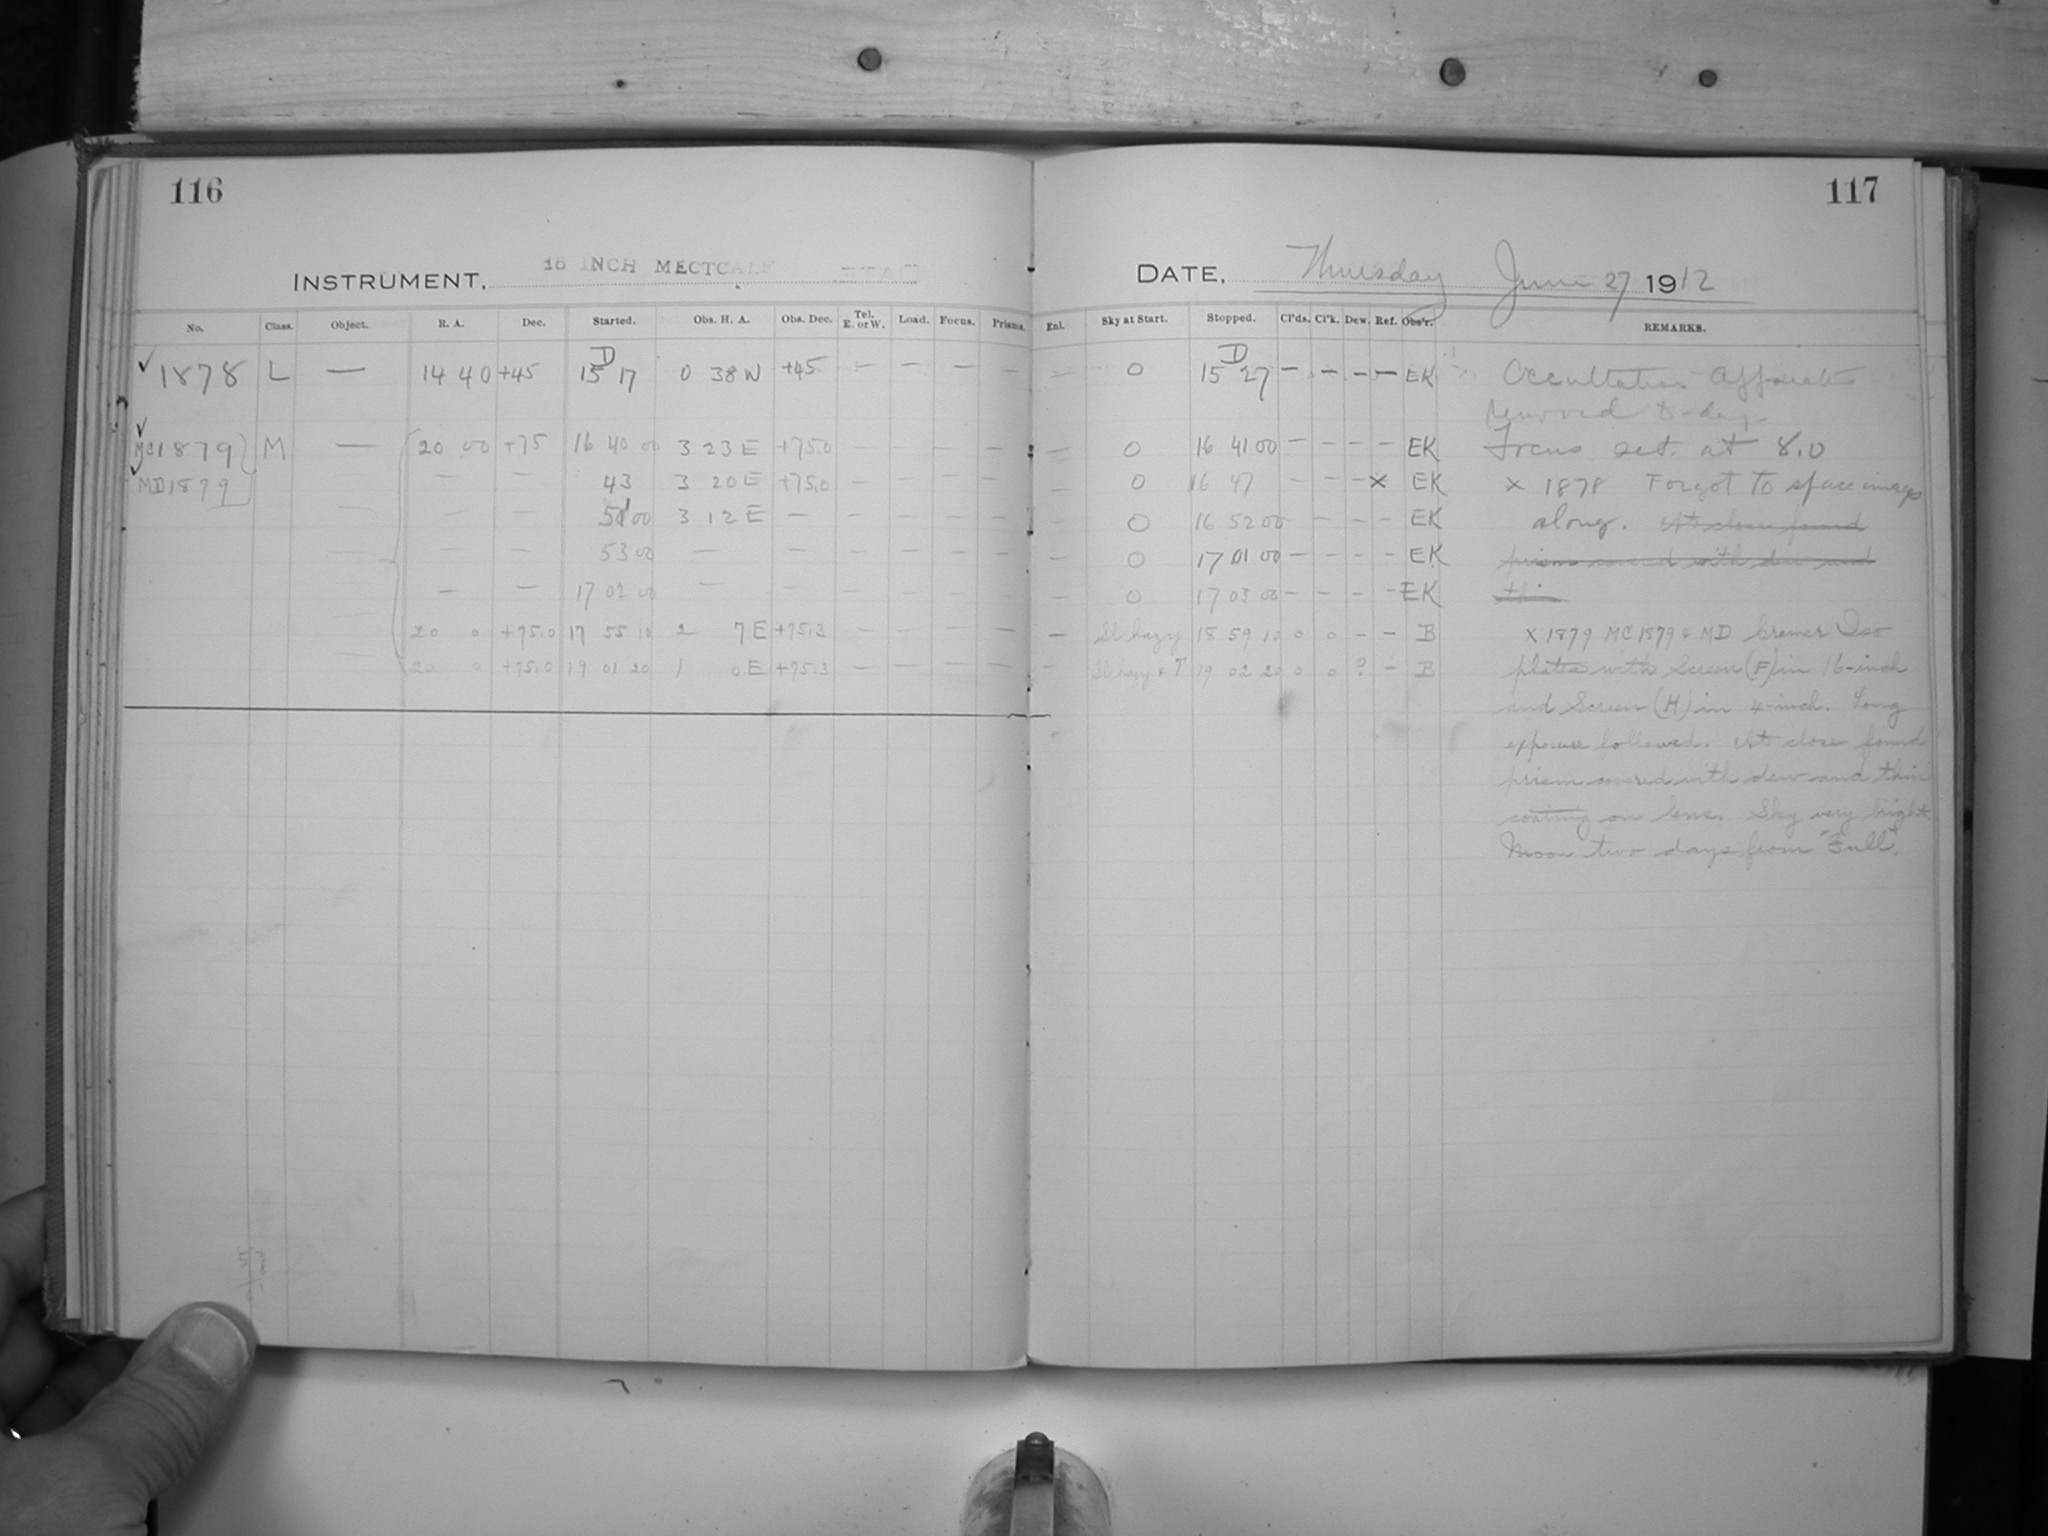 116
117
INSTRUMENT, 16 INCH MECTCALF
DATE, Thursday June 27 1912
No. Class. Object. R. A. Dec. Started. Obs. H. A. Obs. Dec. Tel. E. or W. Load. Focus. Prisms. Enl. Sky at Start. Stopped. Cl'ds. Cl'k. Dew. Ref. Obs'r. REMARKS.
✓ 1878 L — 14 40 +45 D 15 17 0 38 W +45 — — — — — 0 D 15 27 — — — — EK Occultation
removed to-day.
✓ MC1879 M — 20 00 +75 16 40 00 3 23 E +75.0 — — — — — 0 16 41 00 — — — — EK Focus set at 8.0
✓ MD1879 — — 43 3 20 E +75.0 — — — — — 0 16 47 — — — x EK x 1878 Forgot to space images
— — — 00 3 12 E — — — — — — 0 16 52 00 — — — — EK along. At close found
— — — 53 00 — — — — — — — 0 17 01 00 — — — — EK prism covered with dew and
— — 17 02 00 — — — — — — — 0 17 03 00 — — — — EK thin
— 20 0 +75.0 17 55 10 2 7 E +75.3 — — — — — Sl hazy 18 59 10 0 0 — — B x 1879 MC1879 & MD Cramer Iso
— 20 0 +75.0 19 01 20 1 0 E +75.3 — — — — — Sl hazy & 19 02 20 0 0 ? — B plates with Screen (F) in 16-inch
and Screen (H) in 4-inch. Long
exposure followed. At close found
prism covered with dew and thin
coating on lens. Sky very bright.
Moon two days from "Full".